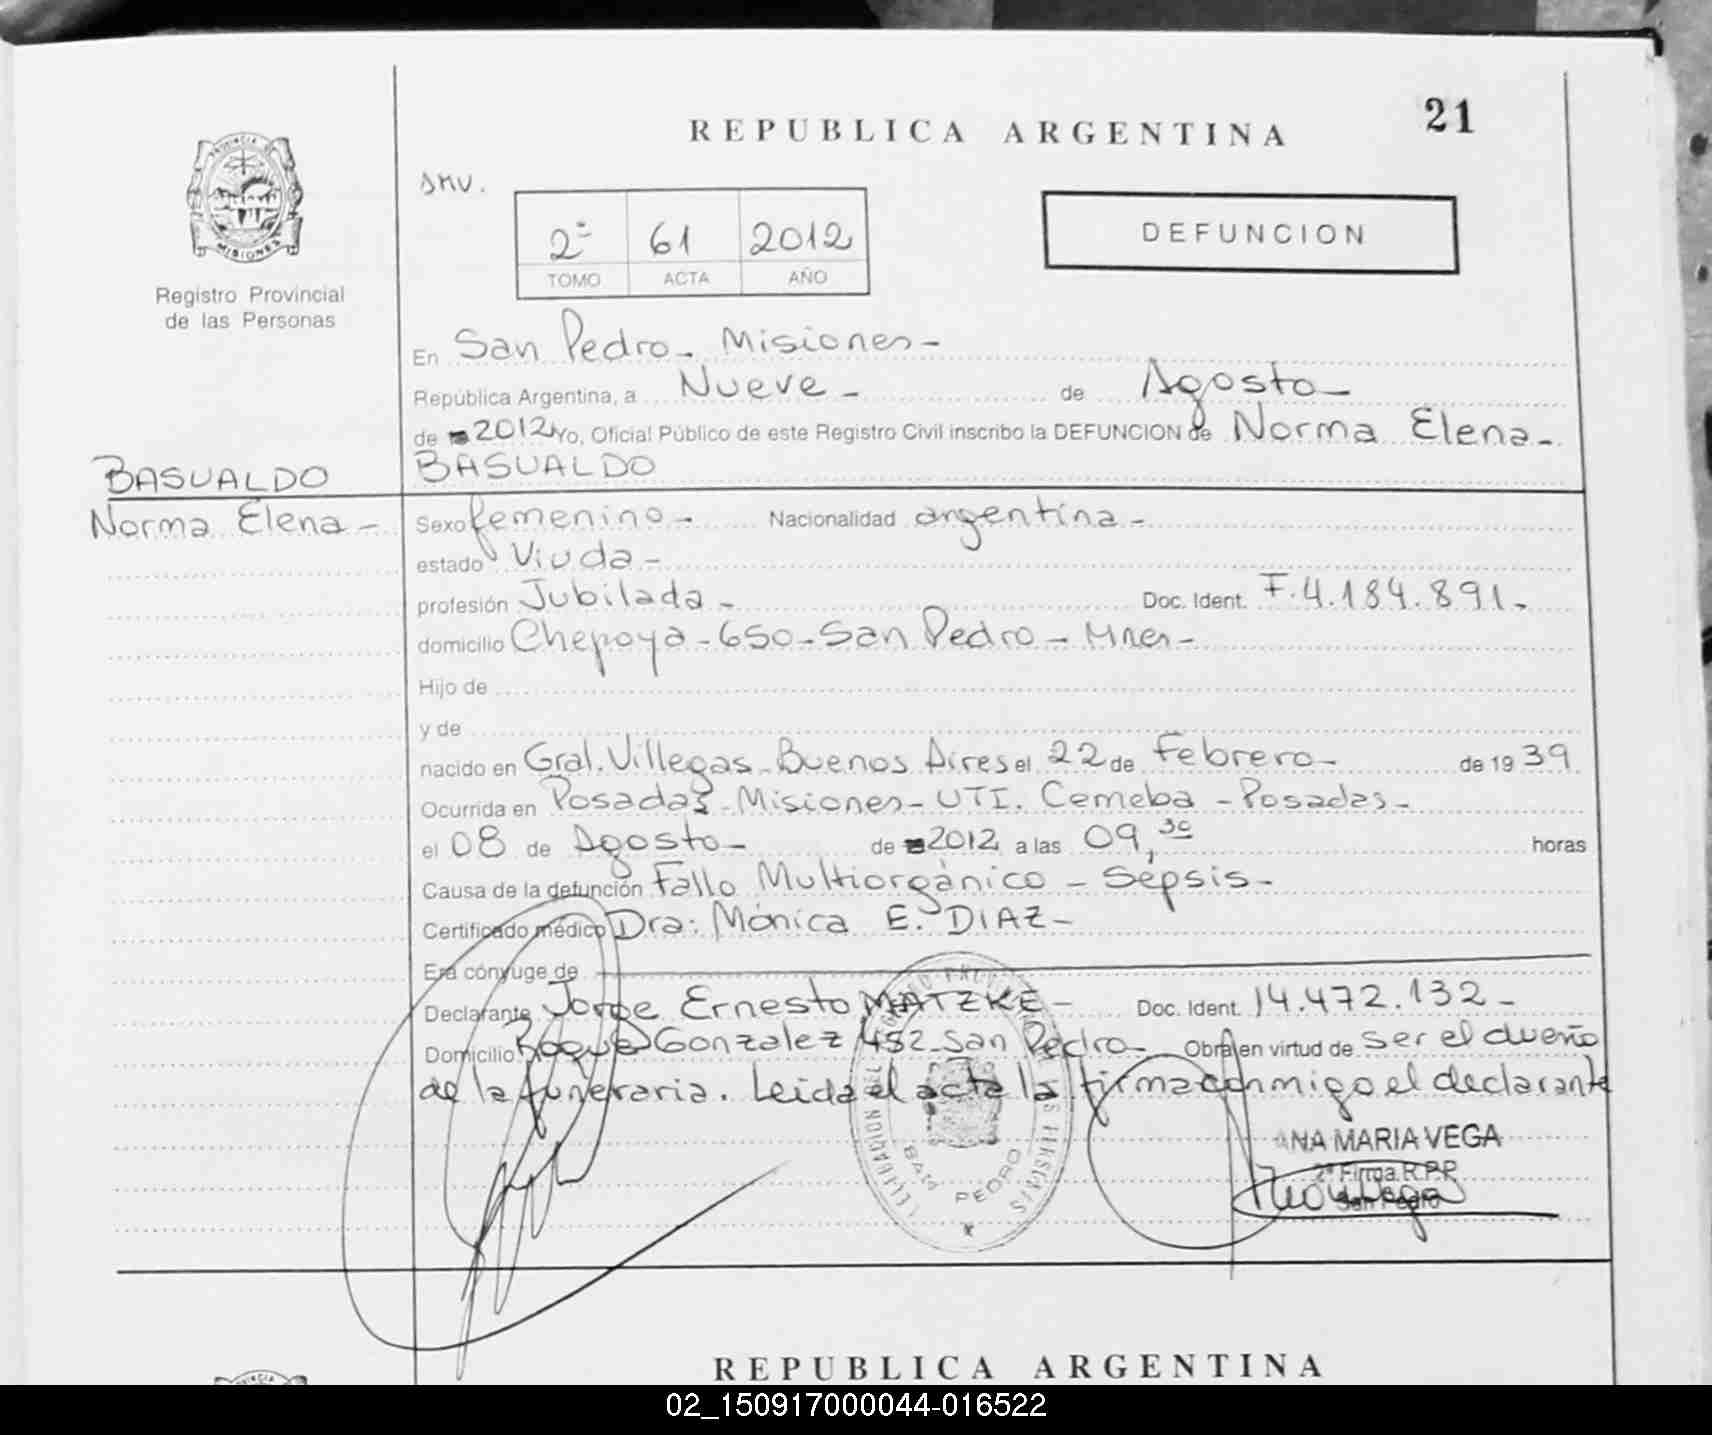 21
REPUBLICA ARGENTINA
PROVINCIA DE
MISIONES
Registro Provincial
de las Personas
SMV.
2ª 61 2012
TOMO ACTA AÑO
DEFUNCION
En San Pedro - Misiones -
República Argentina, a Nueve - de Agosto -
de 2012 Yo, Oficial Público de este Registro Civil inscribo la DEFUNCION de Norma Elena -
BASUALDO
BASUALDO
Norma Elena -
Sexo femenino - Nacionalidad argentina -
estado Viuda -
profesión Jubilada - Doc. Ident. F. 4.184.891 -
domicilio Chepoya - 650 - San Pedro - Mnes -
Hijo de
y de
nacido en Gral. Villegas - Buenos Aires el 22 de Febrero - de 19 39
Ocurrida en Posadas - Misiones - UTI. Cemeba - Posadas -
el 08 de Agosto - de 2012 a las 09,30 horas
Causa de la defunción Fallo Multiorgánico - Sepsis -
Certificado médico Dra: Mónica E. DIAZ -
Era cónyuge de
Declarante Jorge Ernesto MATZKE - Doc. Ident. 14.472.132 -
Domicilio Roque Gonzalez 452 - San Pedro - Obra en virtud de ser el dueño
de la funeraria. Leida el acta la firma conmigo el declarante
SAN PEDRO
ANA MARIA VEGA
2ª Firma R.P.P.
San Pedro
REPUBLICA ARGENTINA
02_150917000044-016522